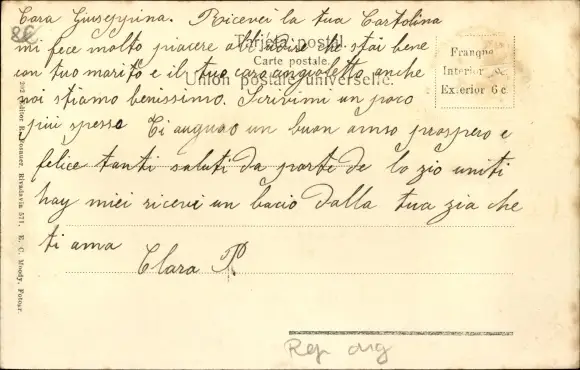 Cara Giuseppina. Ricevei la tua Cartolina
mi fece molto piacere che stai bene
con tuo marito e il tuo caro angioletto anche
noi stiamo benissimo. Scrivimi un poco
piu spesso Ti auguro un buon anno prospero e
felice tanti saluti da parte de lo zio uniti
hay miei ricevi un bacio dalla tua zia che
ti ama
Clara P
Tarjeta postal.
Carte postale.
Union postale universelle.
Franqueo
Interior
Exterior 6 c
202 Editor R. Rosauer, Rivadavia 571. E. C. Moody, Fotogr.
Rep arg